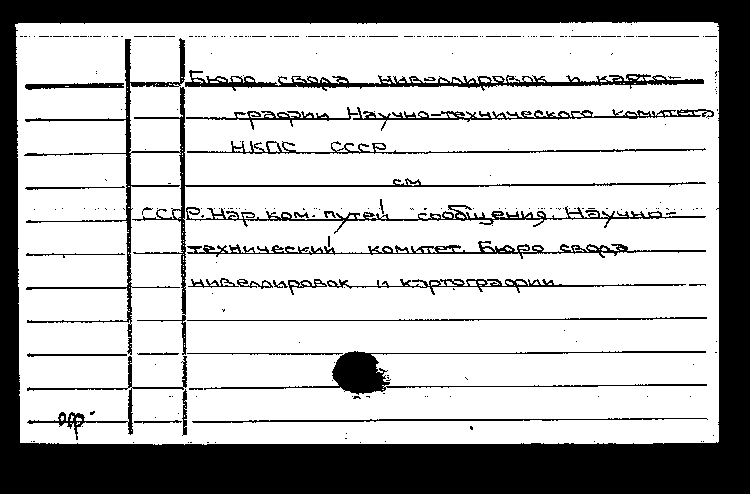 Бюро свода нивеллировок и карто-
графии Научно-технического комитета
НКПС СССР.
см
СССР. Нар. ком. путей сообщения. Научно-
технический комитет. Бюро свода
нивеллировок и картографии.